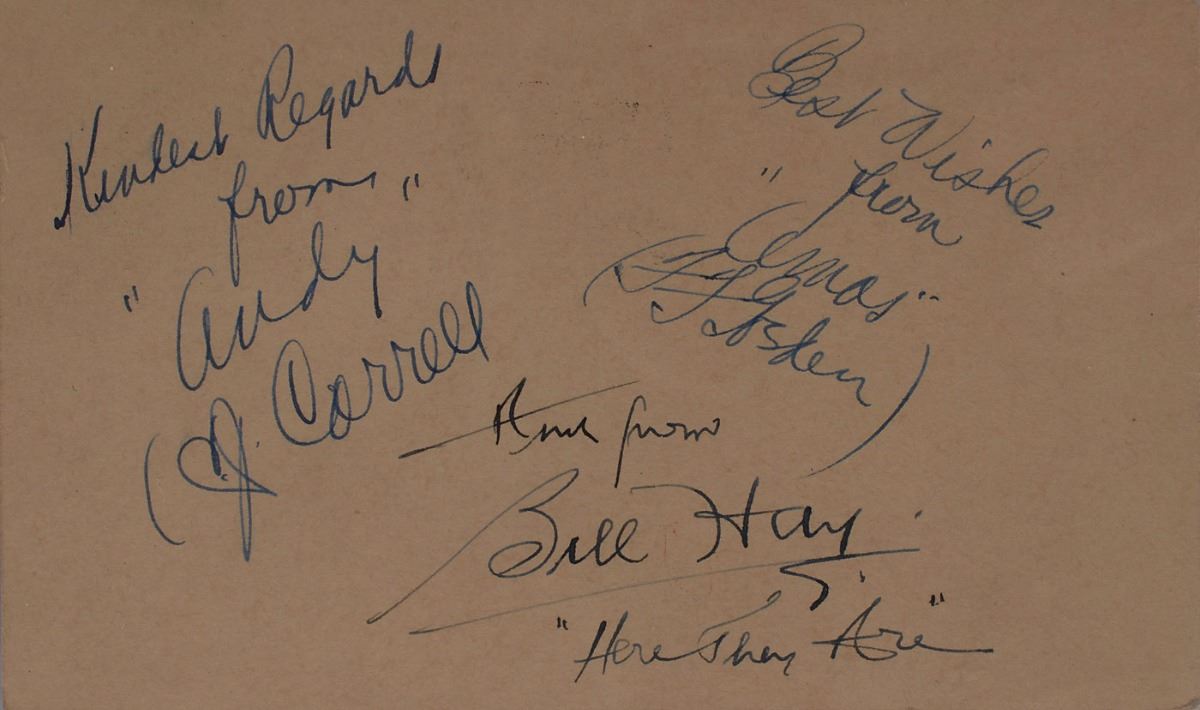 Kindest Regards
from
"Andy"
(C. J. Correll
Best Wishes
from
"Amos"
(F. F. Gosden)
from
Bill Hay.
"Here They Are"